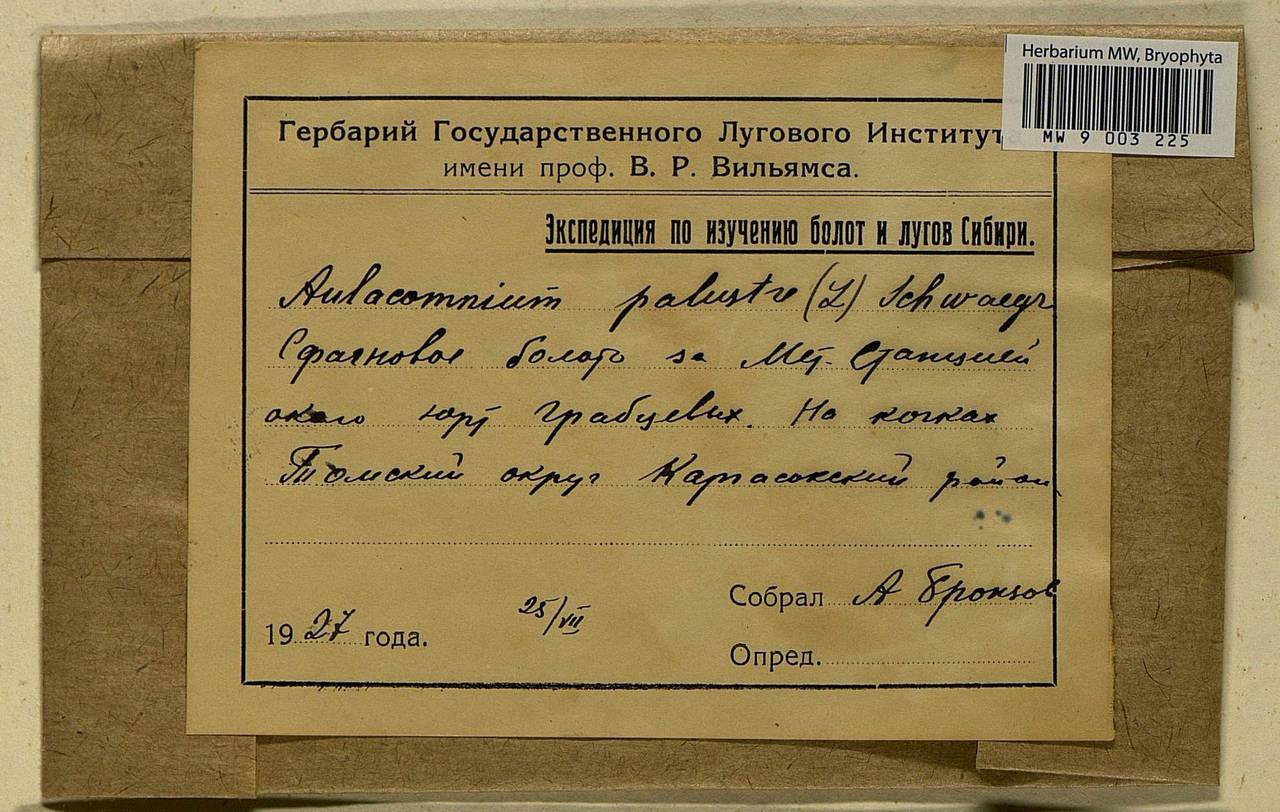 Herbarium MW, Bryophyta
MW 9 003 225
Гербарий Государственного Лугового Институт
имени проф. В. Р. Вильямса.
Экспедиция по изучению болот и лугов Сибири.
Aulacomnium palustre (L) Schwaegr.
Сфагновое болото за Мет. Станцией
около юрт Грабцевых. На кочках
Томский округ Каргасокский район.
25/VII
Собрал А Бронзов
1927 года.
Опред.